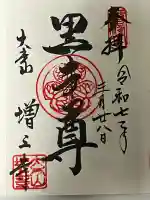 奉拝
令和七年
月廿八日
黒本尊
大本山
増上寺